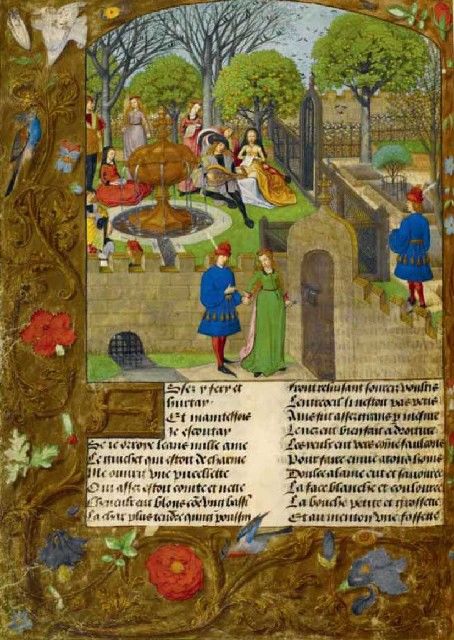 Assez y fery et
hurtay
Et maintesfois
Je escoutay
Se je verroye leans nulle ame
Le guichet qui estoit de charme
Me ouvrit vne pucellette
Qui assez estoit cointe et nette
Cheueulx eut blons come vng bassi
La char plus tendre quung poussin
Front reluisant sourcilz voultis
Lentroeil si nestoit pas petis
Ains fut assez grans p mesure
Le nez eut bien fait a droiture
Les yeulx eut vers come faulcons
Pour faire enuie a
Doulce alaine eut et sauouree
La face blanche et coulouree
La bouche petite et grossette
Et au menton vne fossette